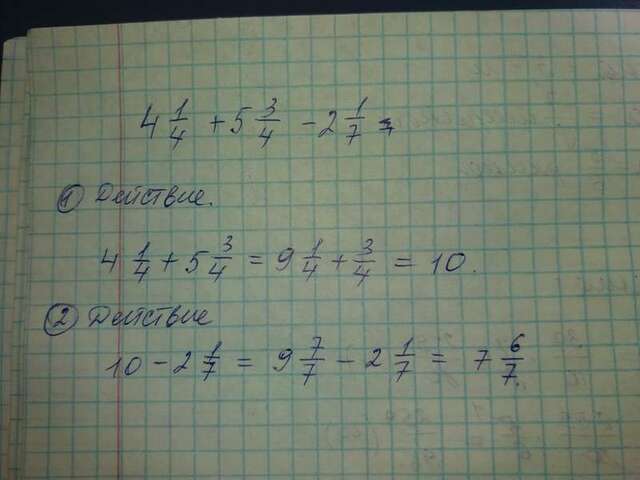 4 1/4 + 5 3/4 - 2 1/7 =
① Действие.
4 1/4 + 5 3/4 = 9 1/4 + 3/4 = 10.
② Действие
10 - 2 1/7 = 9 7/7 - 2 1/7 = 7 6/7.